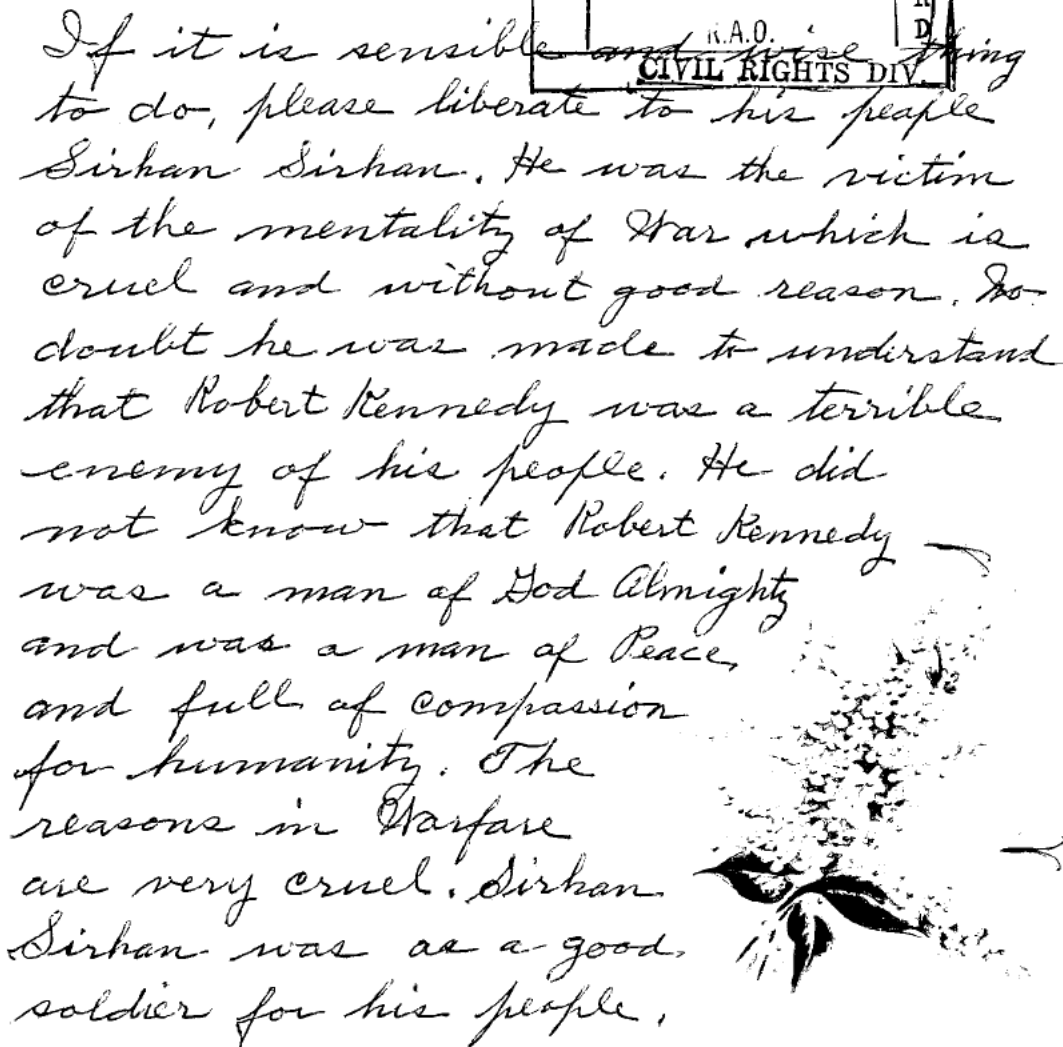 R
D
R.A.O.
CIVIL RIGHTS DIV.
If it is sensible and wise thing
to do, please liberate to his people
Sirhan Sirhan. He was the victim
of the mentality of War which is
cruel and without good reason. No
doubt he was made to understand
that Robert Kennedy was a terrible
enemy of his people. He did
not know that Robert Kennedy
was a man of God Almighty
and was a man of Peace,
and full of compassion
for humanity. The
reasons in Warfare
are very cruel. Sirhan
Sirhan was as a good
soldier for his people.